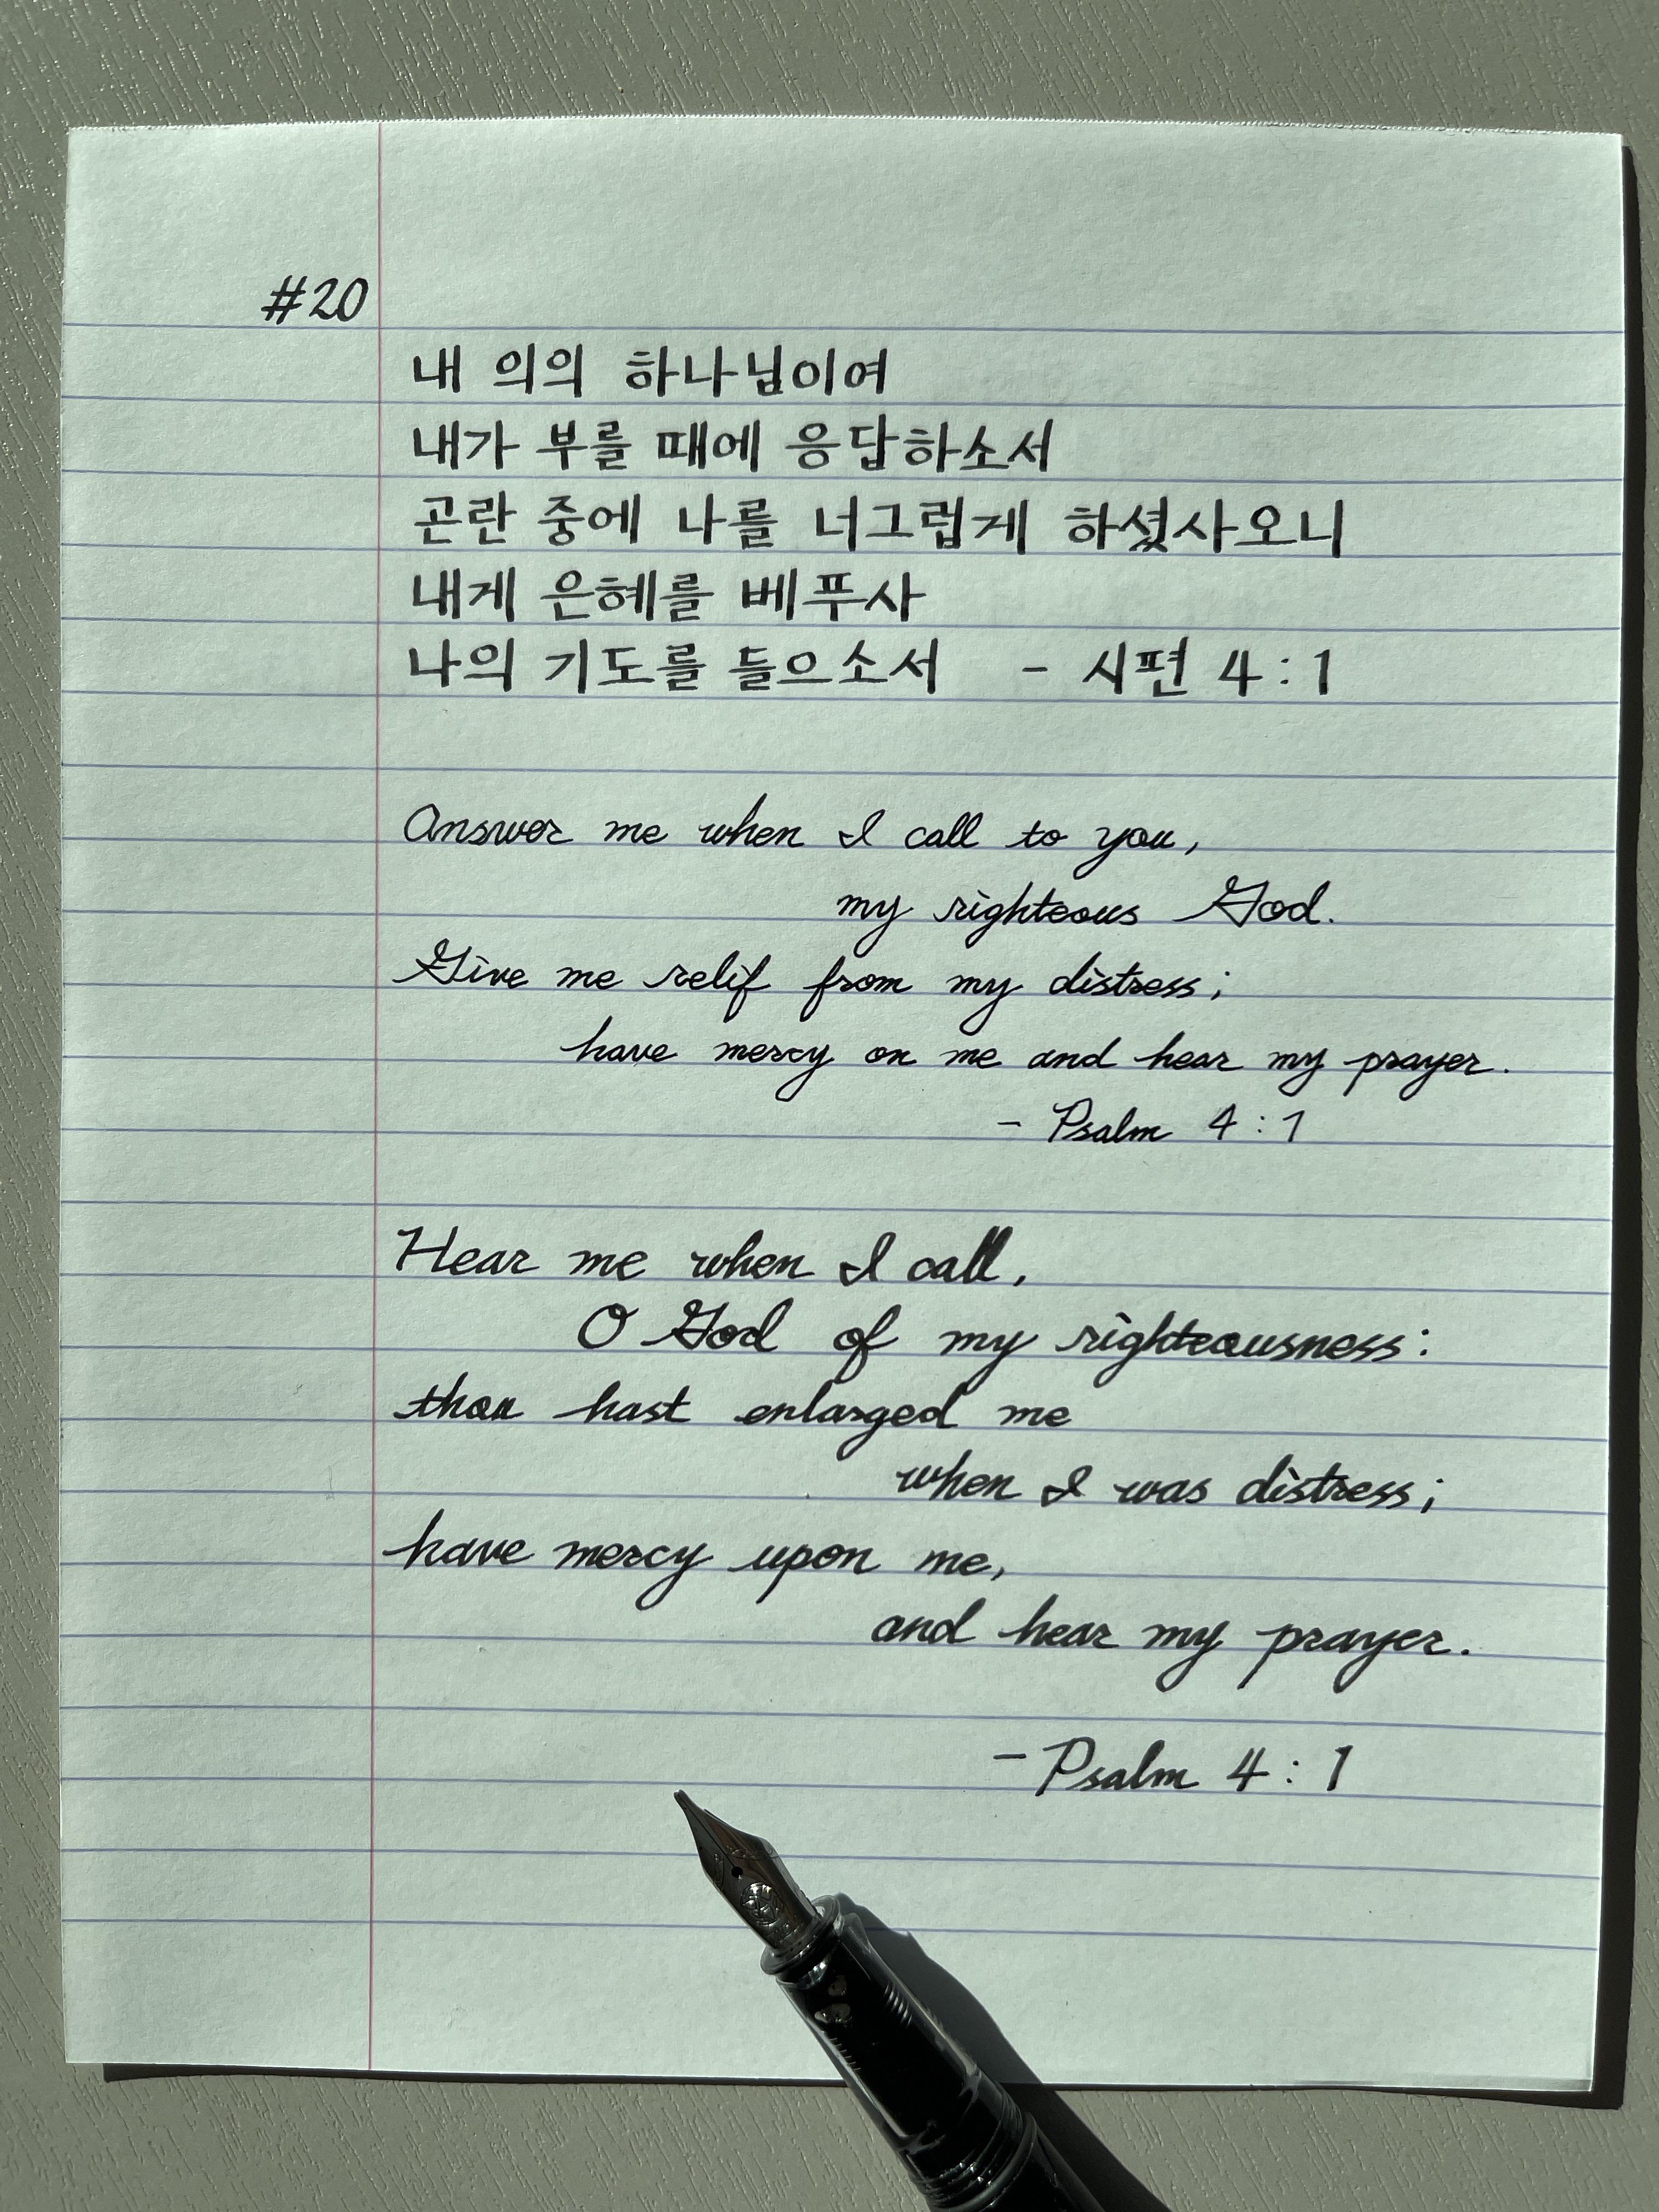 #20
내 의의 하나님이여
내가 부를 때에 응답하소서
곤란 중에 나를 너그럽게 하셨사오니
내게 은혜를 베푸사
나의 기도를 들으소서 - 시편 4:1
Answer me when I call to you,
my righteous God.
Give me relif from my distress;
have mercy on me and hear my prayer.
- Psalm 4:1
Hear me when I call,
O God of my righteousness:
thou hast enlarged me
when I was distress;
have mercy upon me,
and hear my prayer.
- Psalm 4:1